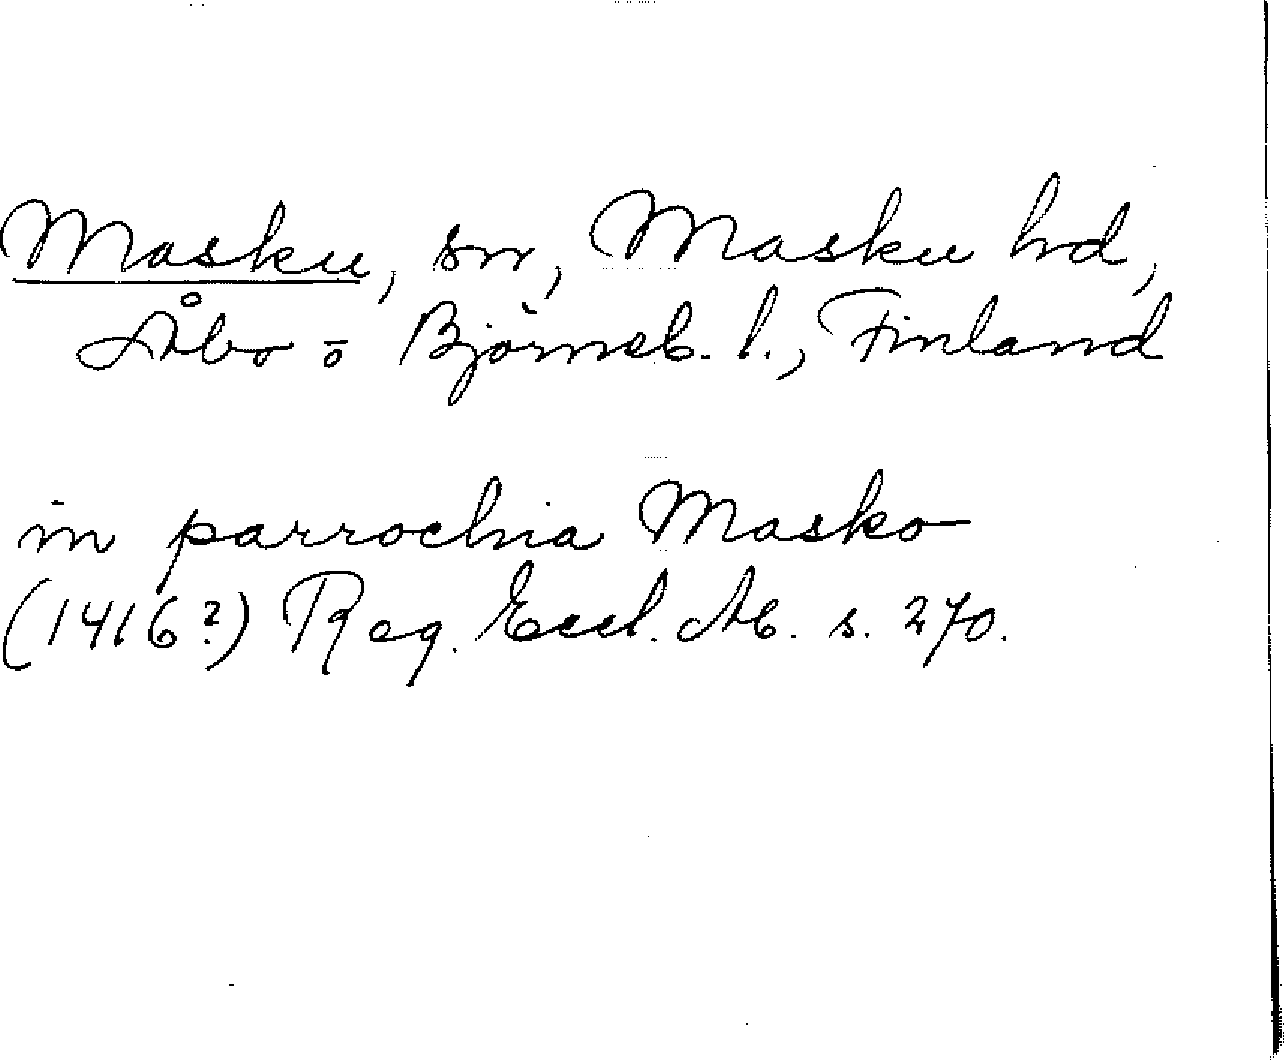 Masku, sn, Masku hd,
Åbo o Björneb. l., Finland
in parrochia Masko
(1416?) Reg. Eccl. Ab. s. 270.